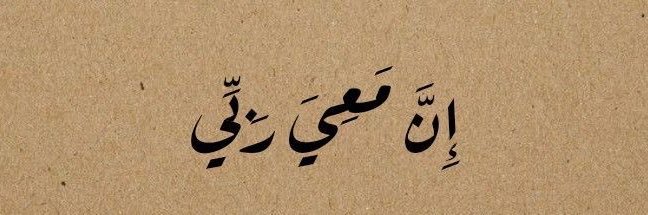 إِنَّ مَعِيَ رَبِّي